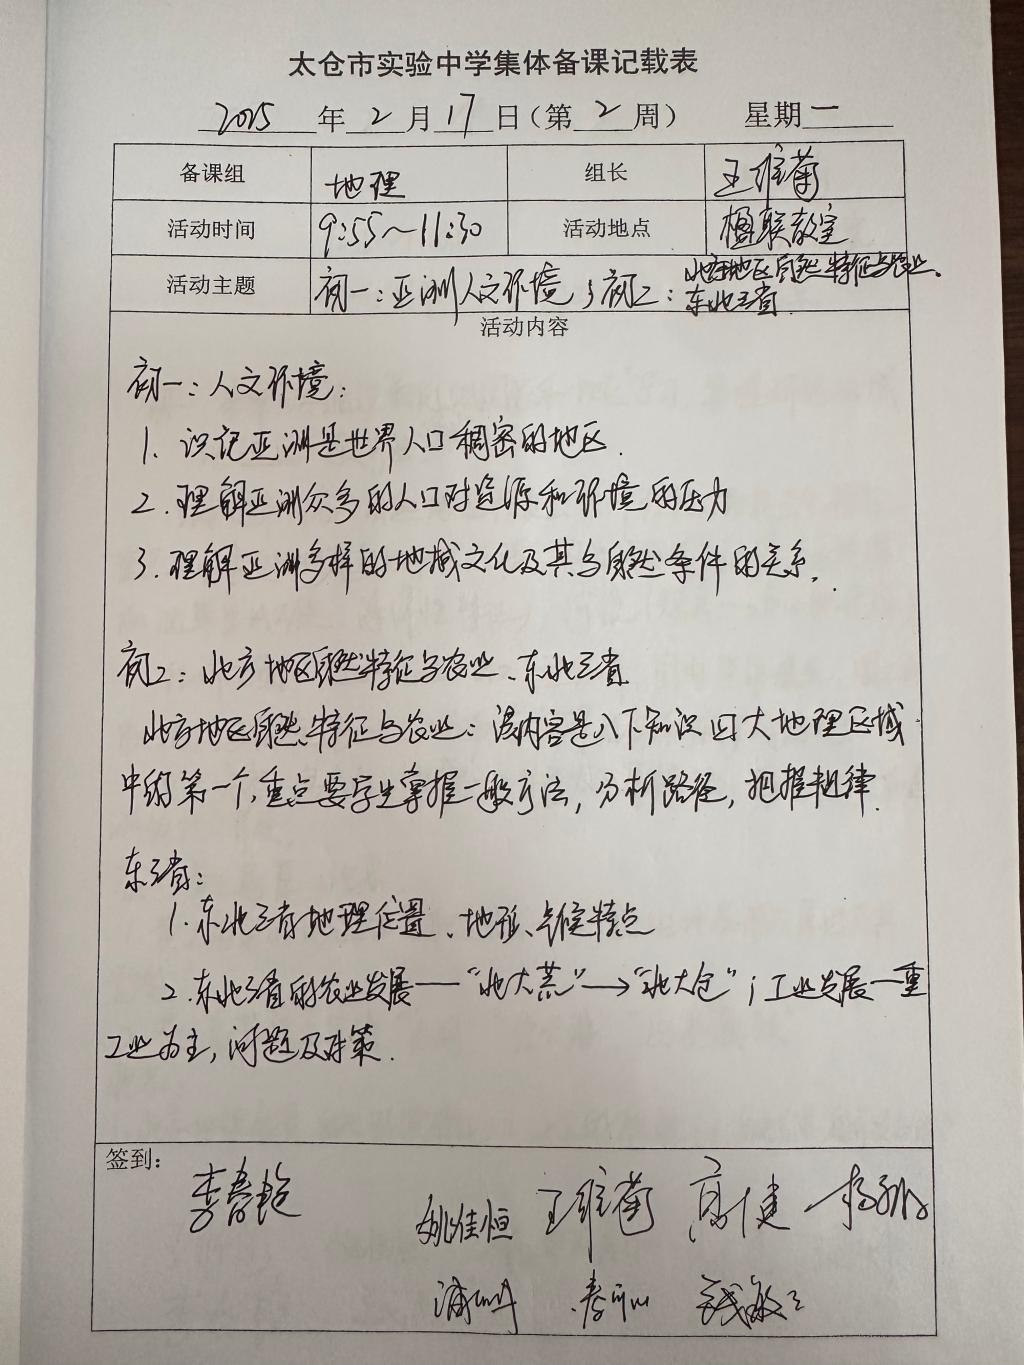 太仓市实验中学集体备课记载表
2025年2月17日（第2周） 星期一
备课组 地理 组长 王维菊
活动时间 9:55～11:30 活动地点 楹联教室
活动主题 初一：亚洲人文环境；初二：北方地区自然特征与农业、
东北三省
活动内容
初一：人文环境：
1. 识记亚洲是世界人口稠密的地区.
2. 理解亚洲众多的人口对资源和环境的压力
3. 理解亚洲多样的地域文化及其与自然条件的关系.
初二：北方地区自然特征与农业、东北三省
北方地区自然特征与农业：该内容是八下知识四大地理区域
中的第一个，重点要学生掌握一般方法，分析路径，把握规律.
东三省：
1. 东北三省地理位置、地形、气候特点
2. 东北三省的农业发展—“北大荒”→“北大仓”；工业发展—重
工业为主，问题及对策.
签到：
李春艳 姚佳恒 王维菊 高健
钱敏